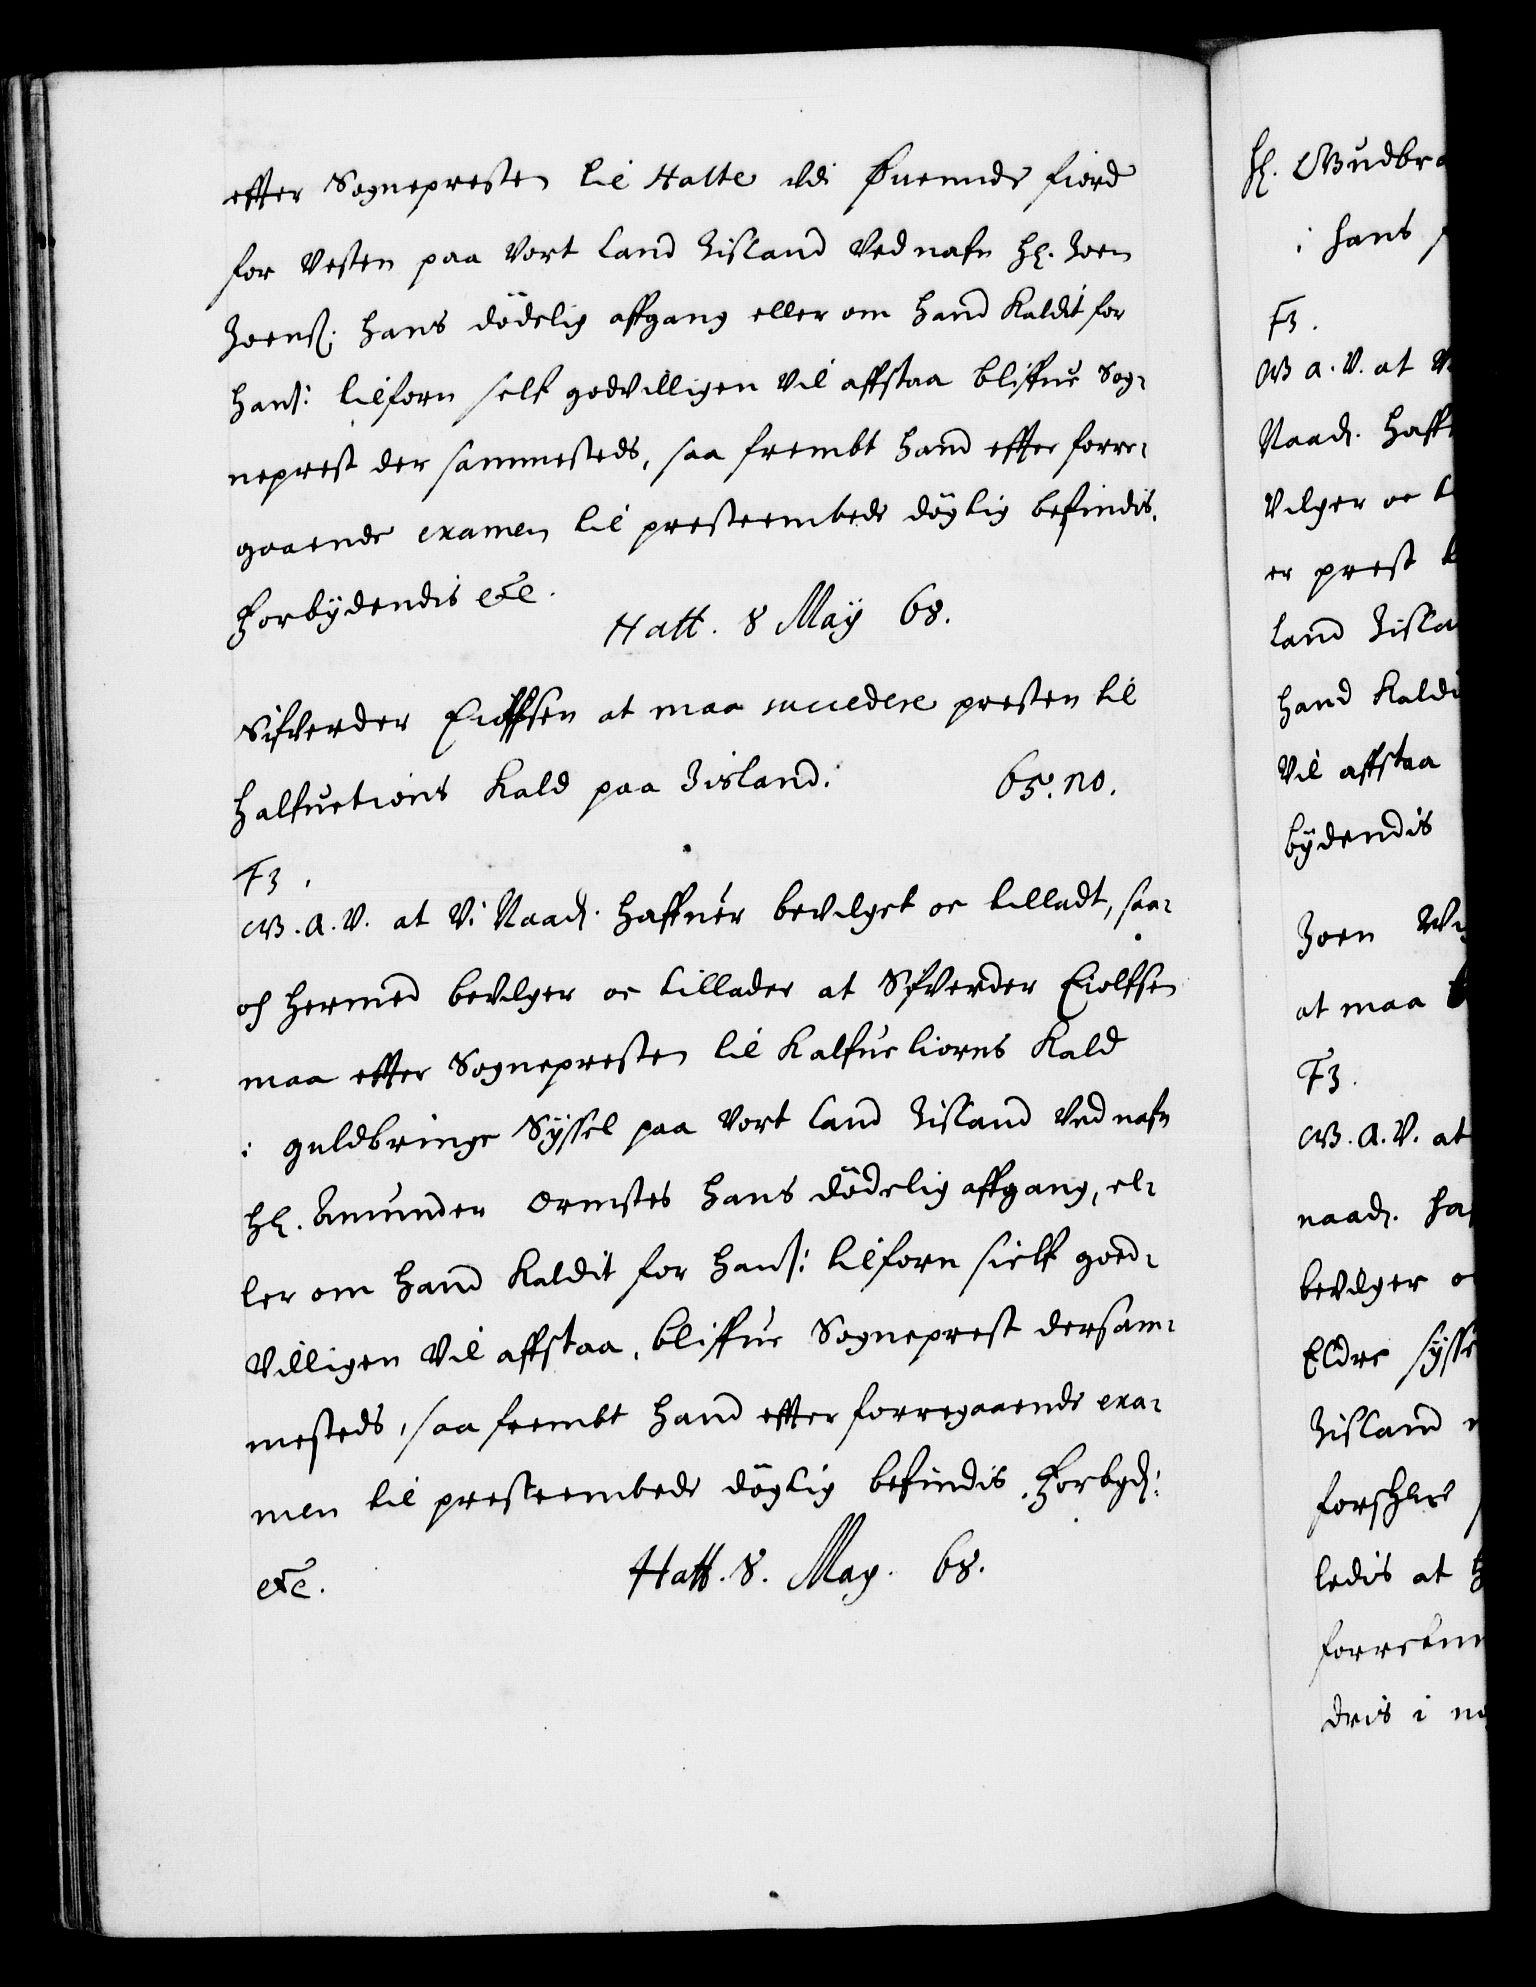 effter Sognepresten til Hatte vdi Önundz fiord
for Vesten paa Vort Land Iisland Ved nafn Hl. Joen
Joens: hans dödelig affgang eller om hand Kaldit for
Hans: tilforn self godvilligen Vil affstaa bliffue Sog-
neprest der sammesteds, saa frembt hand effter forre-
gaaende examen til presteembede döglig befindis.
Forbÿdendis etc.
Haff. 8 Maÿ 68.
Sifverder Eiolffsen at maa succedere presten til
Kalfuetiörns Kald paa Iisland.
65. no.
F3.
G. A. V. at Vi Naad. Haffuer bevilget oc tilladt, saa-
og hermed bevilger oc tillader at Sifverder Eiolfsen
maa effter Sognepresten til Kalfuetiorns Kald
i guldbringe Sÿssel paa Vort Land Iisland Ved nafn
Hl. Amunder Ormses hans dödelig affgang, el-
ler om hand Kaldit for Hans: tilforn sielf goed-
Villigen Vil affstaa, bliffue Sogneprest dersam-
mesteds, saa frembt hand effter forregaaende exa-
men til presteembede döglig befindis. Forbyd:
etc.
Haff. 8. May. 68.
Hl. Gudbra
i hans
F3.
G A. V. at V
Naad. haff
Vilger oc t
er prest t
Land Iisla
hand Kaldi
Vil affstaa
bÿdendis
Joen
at maa
F3.
G. A. V. at
naad. ha
bevilger o
Eldre sÿsse
Iisland
forskre
ledis at
forreten
dris i no